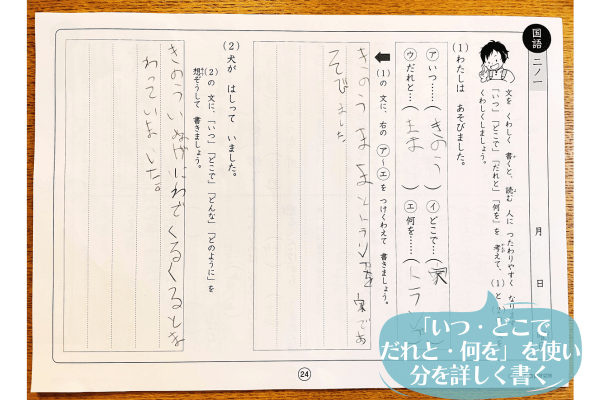 国語
二ノ一
月　日
文を くわしく 書くと、読む 人に つたわりやすく なり
「いつ」「どこで」「だれと」「何を」を 考えて、(1)と
くわしくしましょう。
(1) わたしは あそびました。
㋐ いつ……(きのう) ㋑ どこで…(家
㋒ だれと…(まま) ㋓ 何を……(トランプ
(1)の 文に、右の ㋐〜㋓を つけくわえて 書きましょう。
きのう ままと トランプを 家であ
そびました
(2) 犬が はしって いました。
(2)の 文に、「いつ」「どこで」「どんな」「どのように」を
想ぞうして 書きましょう。
きのういぬがにわでくるくるとま
わっていました。
24
「いつ・どこで
だれと・何を」を使い
分を詳しく書く